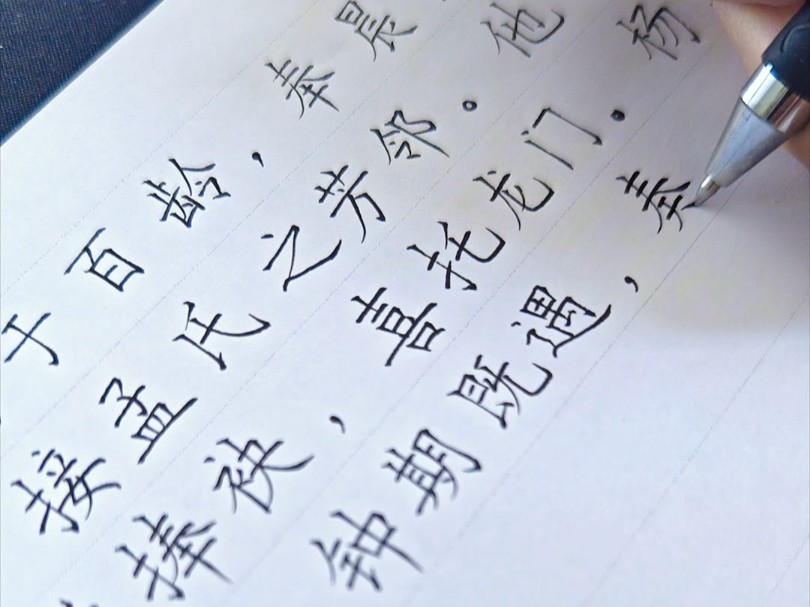 于百龄，奉晨
接孟氏之芳邻。他
捧袂，喜托龙门。杨
钟期既遇，奏